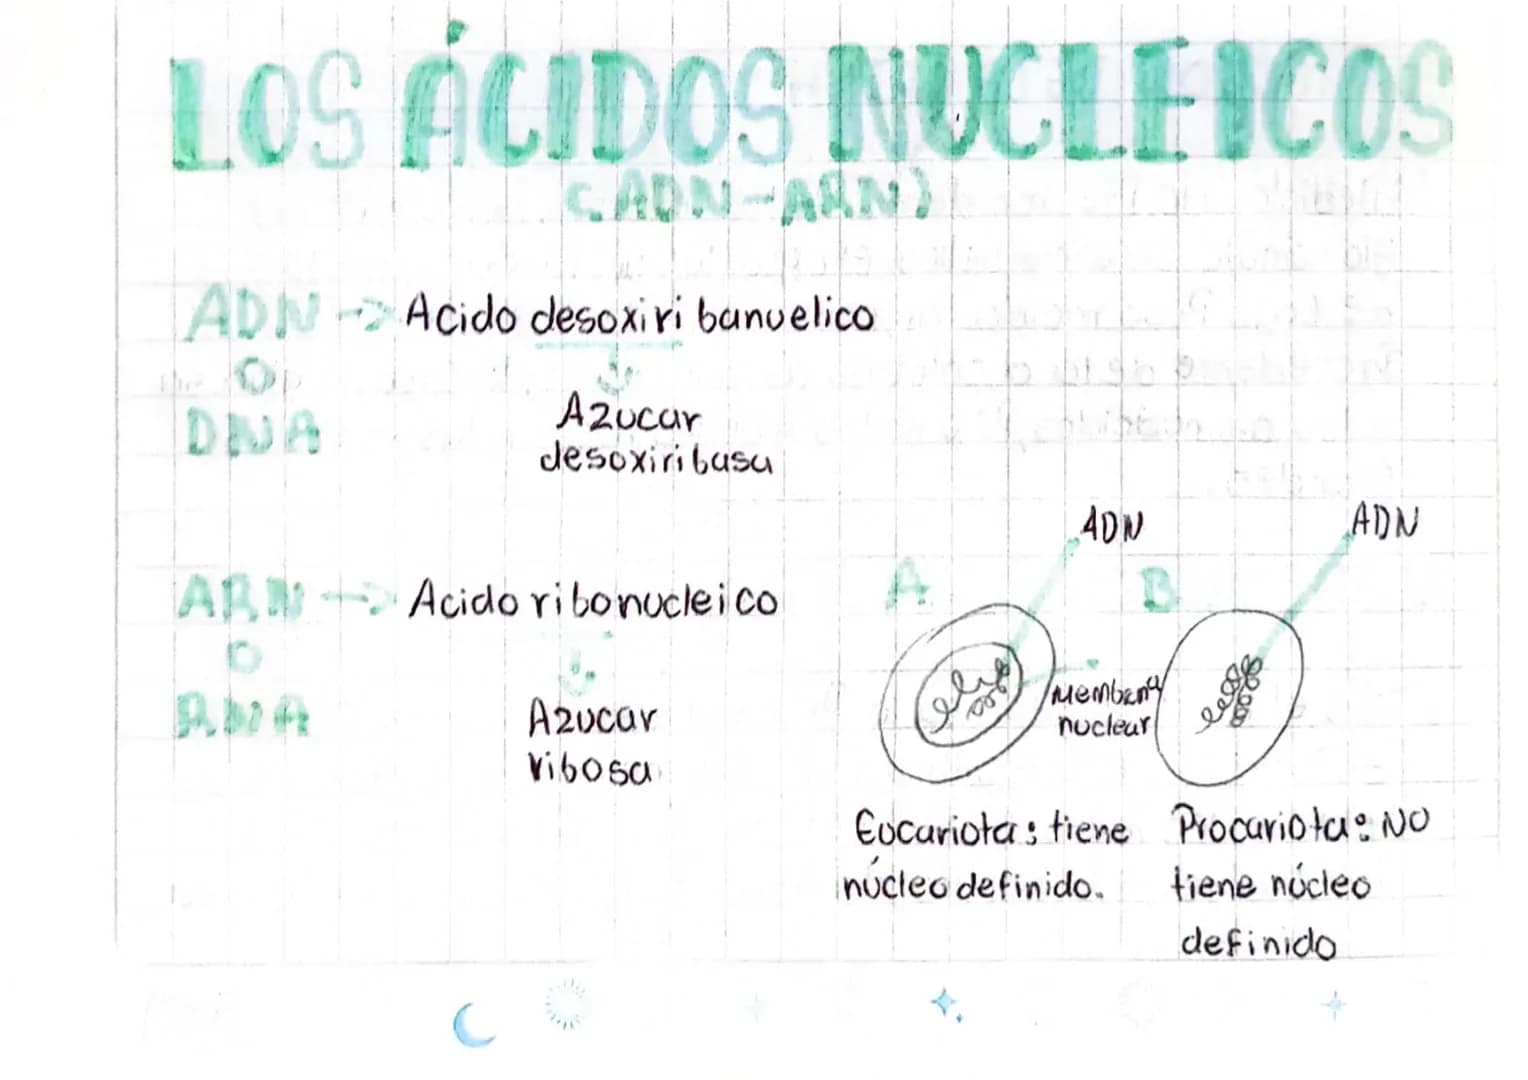 LOS ÁCIDOS NUCLEICOS
(ADN-ARN)
ADN -> Acido desoxiri banuelico
O
DNA
Azucar
desoxiribusa
ADN
ADN
ARN -> Acido ribonucleico
A
B
O
RNA
Azucar
ribosa
Membana
nuclear
Eucariota: tiene
núcleo definido.
Procariota: NO
tiene núcleo
definido